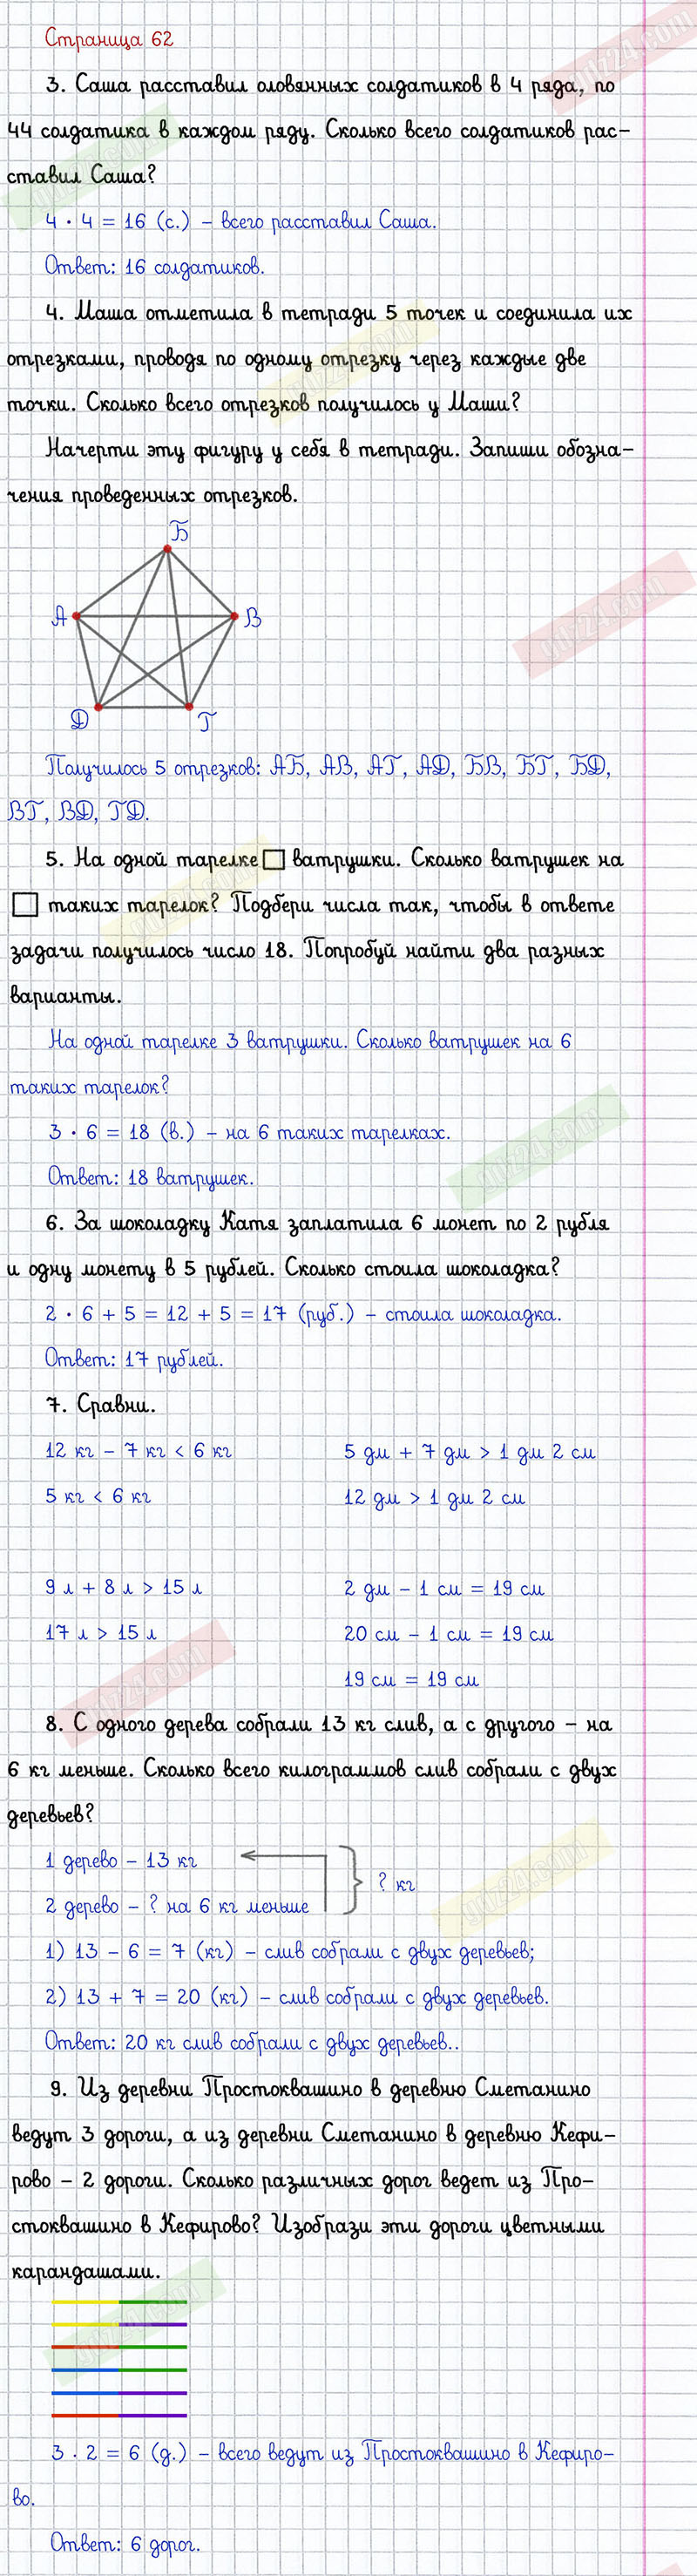 Страница 62
3. Саша расставил оловянных солдатиков в 4 ряда, по
44 солдатика в каждом ряду. Сколько всего солдатиков рас-
ставил Саша?
4 · 4 = 16 (с.) – всего расставил Саша.
Ответ: 16 солдатиков.
4. Маша отметила в тетради 5 точек и соединила их
отрезками, проводя по одному отрезку через каждые две
точки. Сколько всего отрезков получилось у Маши?
Начерти эту фигуру у себя в тетради. Запиши обозна-
чения проведенных отрезков.
Б
А
В
Д
Г
Получилось 5 отрезков: АБ, АВ, АГ, АД, БВ, БГ, БД,
ВГ, ВД, ГД.
5. На одной тарелке □ ватрушки. Сколько ватрушек на
□ таких тарелок? Подбери числа так, чтобы в ответе
задачи получилось число 18. Попробуй найти два разных
варианты.
На одной тарелке 3 ватрушки. Сколько ватрушек на 6
таких тарелок?
3 · 6 = 18 (в.) – на 6 таких тарелках.
Ответ: 18 ватрушек.
6. За шоколадку Катя заплатила 6 монет по 2 рубля
и одну монету в 5 рублей. Сколько стоила шоколадка?
2 · 6 + 5 = 12 + 5 = 17 (руб.) – стоила шоколадка.
Ответ: 17 рублей.
7. Сравни.
12 кг – 7 кг < 6 кг
5 кг < 6 кг
5 дм + 7 дм > 1 дм 2 см
12 дм > 1 дм 2 см
9 л + 8 л > 15 л
17 л > 15 л
2 дм – 1 см = 19 см
20 см – 1 см = 19 см
19 см = 19 см
8. С одного дерева собрали 13 кг слив, а с другого – на
6 кг меньше. Сколько всего килограммов слив собрали с двух
деревьев?
1 дерево – 13 кг
2 дерево – ? на 6 кг меньше
? кг
1) 13 – 6 = 7 (кг) – слив собрали с двух деревьев;
2) 13 + 7 = 20 (кг) – слив собрали с двух деревьев.
Ответ: 20 кг слив собрали с двух деревьев..
9. Из деревни Простоквашино в деревню Сметанино
ведут 3 дороги, а из деревни Сметанино в деревню Кефи-
рово – 2 дороги. Сколько различных дорог ведет из Про-
стоквашино в Кефирово? Изобрази эти дороги цветными
карандашами.
3 · 2 = 6 (д.) – всего ведут из Простоквашино в Кефиро-
во.
Ответ: 6 дорог.